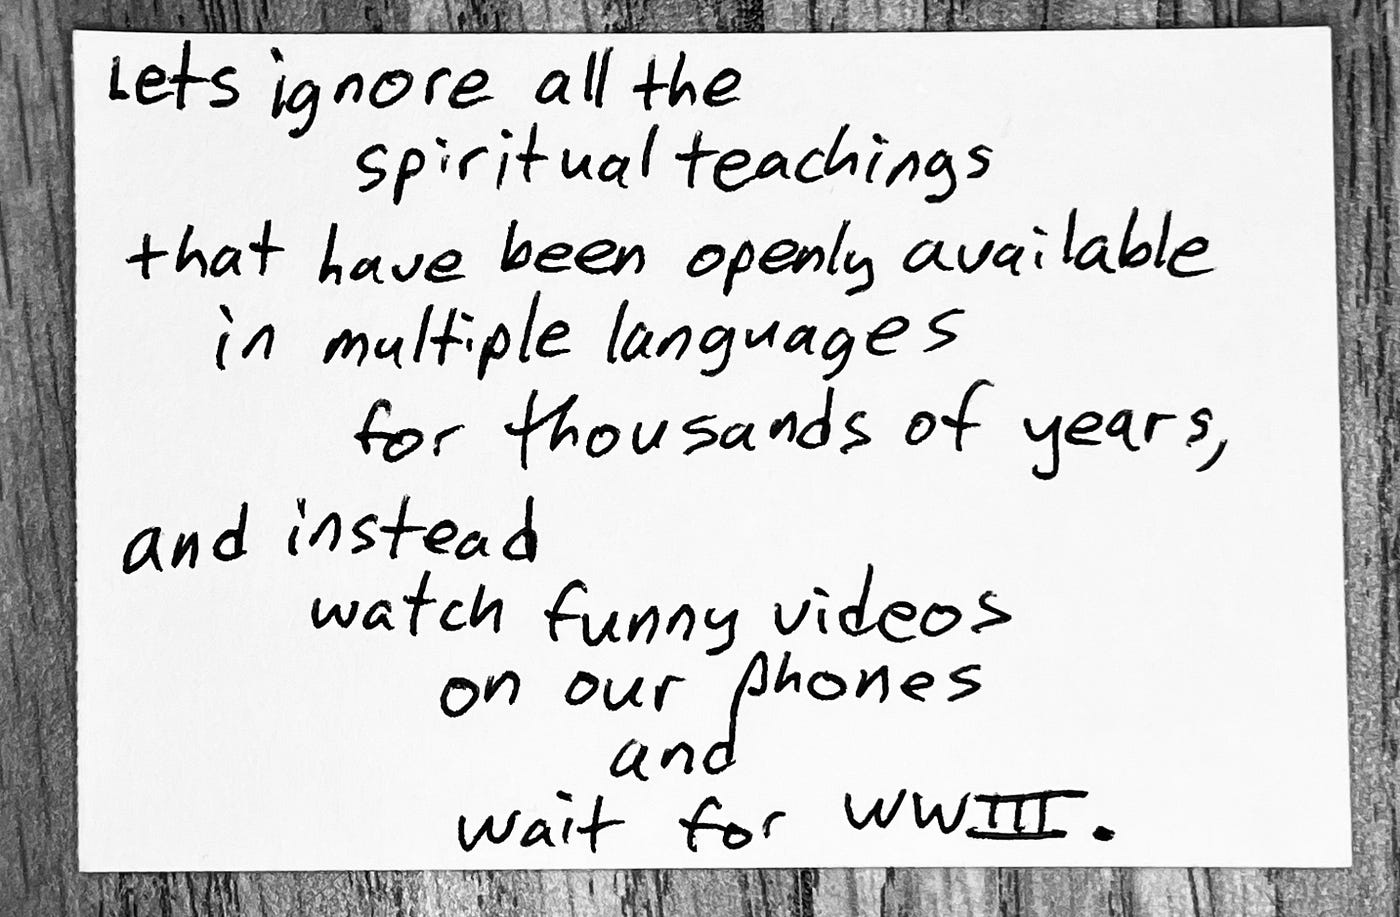 Lets ignore all the
spiritual teachings
that have been openly available
in multiple languages
for thousands of years,
and instead
watch funny videos
on our phones
and
wait for WWIII.